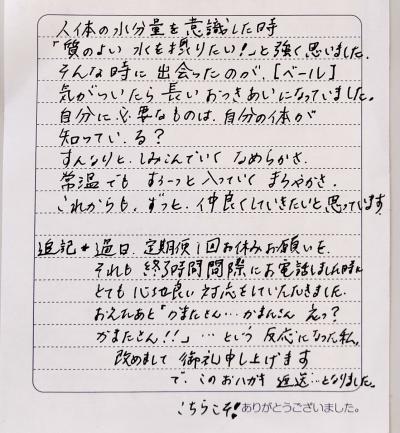 人体の水分量を意識した時
「質のよい水を摂りたい!」と強く思いました.
そんな時に出会ったのが、[ベール]
気がついたら長いおつきあいになっていました。
自分に必要なものは、自分の体が
知っている?
すんなりと、しみこんでいくなめらかさ.
常温でもすぅーっと入っていくまろやかさ.
これからも、ずっと、仲良くしていきたいと思っています.
追記* 過日、定期便1回お休みお願いを.
それも終了時間間際にお電話しました時に
とても心地良い対応をしていただきました.
おえたあと「かまたさん…かまたさんえっ?
かまたさん!!」…という反応になった私。
改めまして御礼申し上げます
で、このおハガキ返送…となりました。
こちらこそ!ありがとうございました。